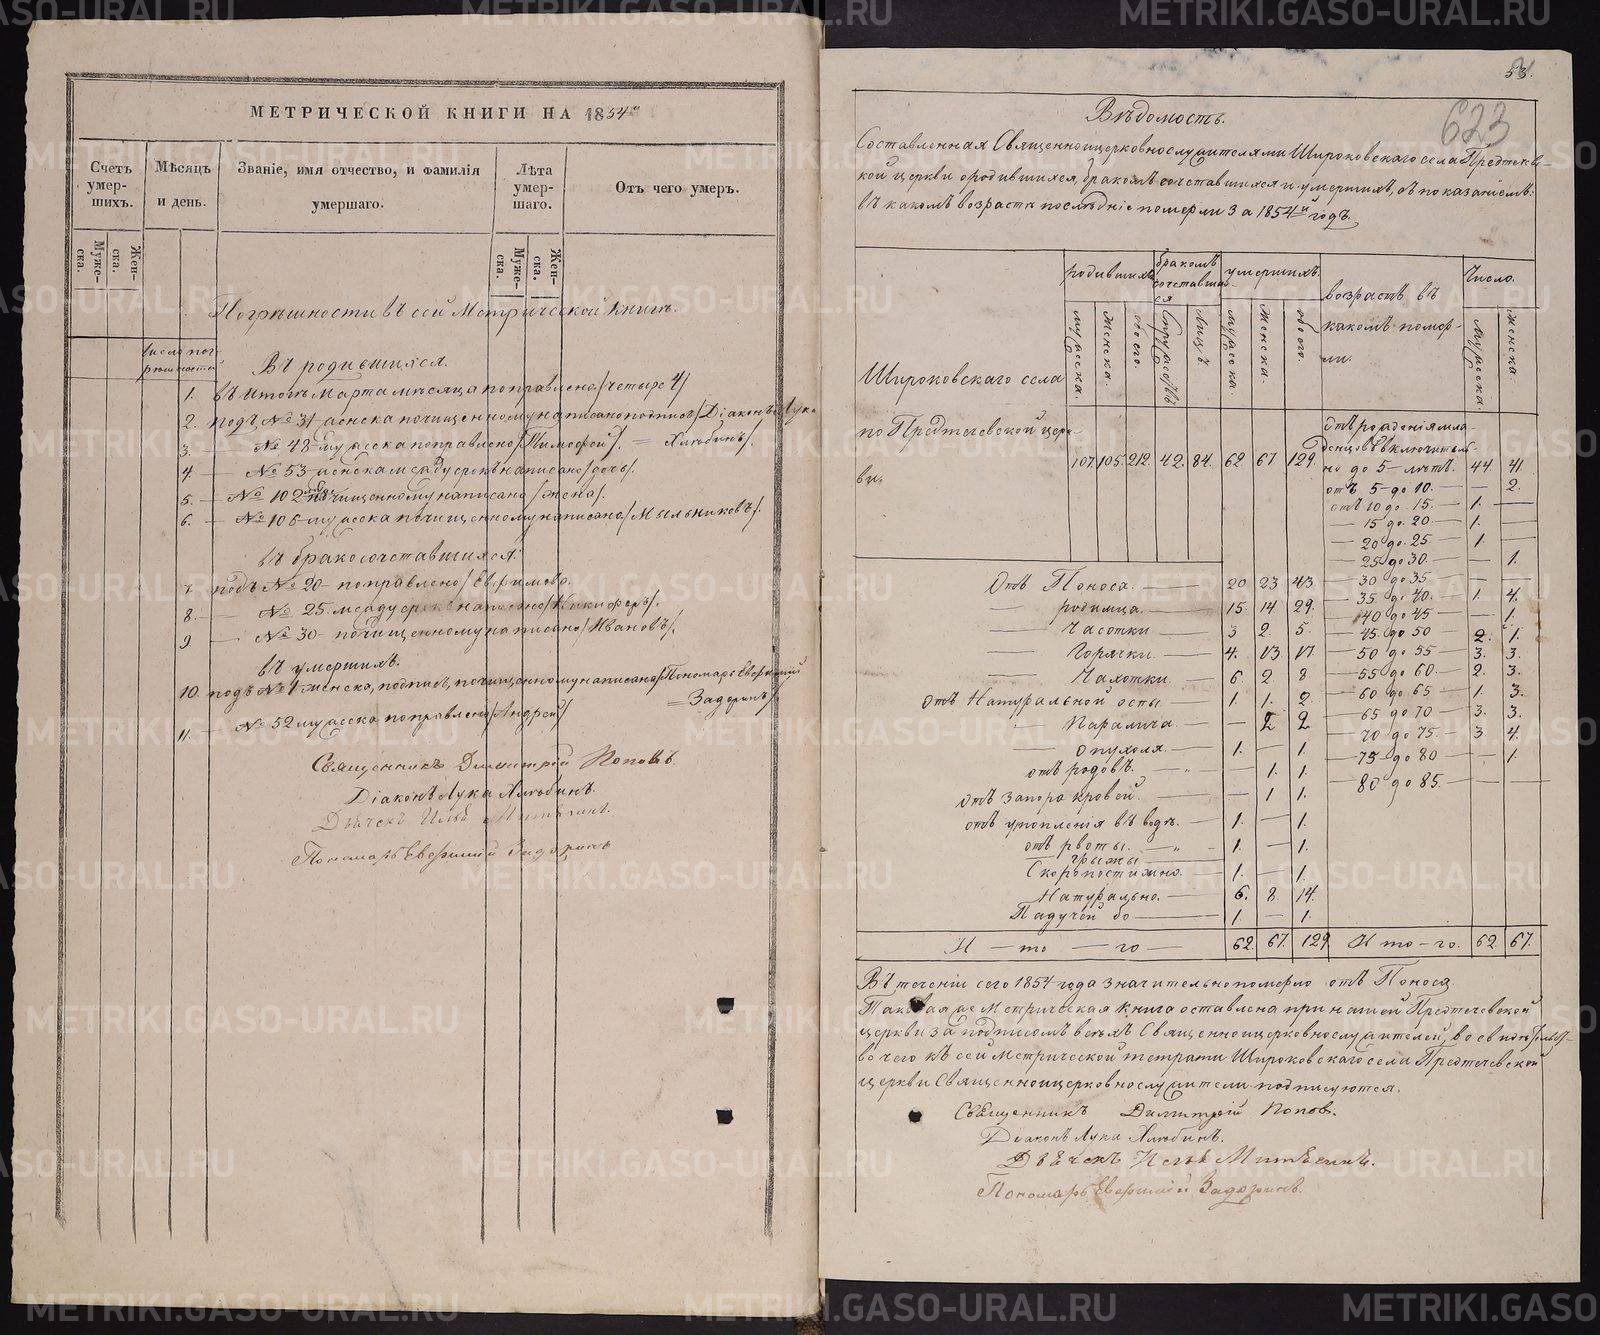 МЕТРИЧЕСКОЙ КНИГИ НА 1854й
Счетъ умер-шихъ.
Мѣсяцъ и день.
Званіе, имя отчество, и фамилія умершаго.
Лѣта умер-шаго.
Отъ чего умеръ.
Муже-ска.
Жен-ска.
Муже-ска.
Жен-ска.
Погрѣшности въ сей Метрической книгѣ.
Число пог-рѣшностей
Въ родившихся.
1. въ итогѣ Марта мѣсяца поправлено /четыре 4/
2. подъ № 31 женска почищенному написано подпись /Діаконъ Лука
3. — № 48 мужеска поправлено /Тимофей/. = Хлюбинъ/.
4. — № 53 женска между строкъ написано /дочь/.
5. — № 102 почищенному написано /жена/.
6. — № 106 мужеска почищенному написано /Мыльниковъ/.
въ бракосочетавшихся:
7. подъ № 20 поправлено /Ефимова.
8. — № 25 между строкъ написано /Никифоръ/.
9. — № 30 почищенному написано /Ивановъ/.
въ умершихъ.
10. подъ № 1 женска, подпись, почищенному написано /Пономарь Евгений
= Задоринъ/.
11. — № 52 мужеска поправлено /Андрей/
Священникъ Димитрій Поповъ.
Діаконъ Лука Хлюбинъ.
Дьячекъ Илья
Пономарь Задоринъ
53.
623
Вѣдомость.
Составленная Священноицерковнослужителями Широковскаго села Предтечев-
кой церкви о родившихся, бракомъ сочетавшихся и умершихъ, съ показаніемъ:
въ какомъ возрастѣ послѣдніе померли за 1854й годъ
родившихъ
бракомъ сочетавших-ся
умершихъ.
возрастъ въ какомъ помер-ли.
Число.
мужеска.
женска.
обоего.
Супружествъ
Лицъ.
мужеска.
женска.
обоего.
мужеска.
женска.
Широковскаго села
по Предтечевской церк-
ви.
107. 105. 212. 42. 84. 62 67 129.
Отъ рожденія мла-
денцовъ включительн-
но до 5 лѣтъ. 44. 41.
отъ 5 до 10. — — 2.
отъ 10 до 15. — 1. —
— 15 до 20 — 1. —
— 20 до 25 — 1 —
— 25 до 30. — — 1.
— 30 до 35 — — —
— 35 до 40. — 1. 4.
— 40 до 45 — — 1.
— 45 до 50 — 2. 1.
— 50 до 55 — 3. 3.
— 55 до 60 — 2. 3.
— 60 до 65 — 1. 3.
— 65 до 70 — 3. 3.
— 70 до 75. — 3. 4.
— 75 до 80 — — 1.
— 80 до 85. —
Отъ Поноса. — 20 23 43.
— родимца. — 15. 14. 29.
— Часотки — 3 2. 5.
— Горячки — 4. 13. 17.
— Чахотки — 6. 2 8
отъ Натуральной оспы — 1. 1. 2.
— Паралича. — — 2 2
— опухоля. — 1. — 1.
отъ родовъ. — — 1. 1.
отъ запора кровей. — — 1 1.
отъ утопленія въ водѣ. — 1. — 1.
отъ рвоты. — 1. — 1.
— грыжы —
Скоропостижно. — 1. — 1.
Натурально. — 6. 8. 14.
Падучей бо — 1. — 1.
И — то — го — 62. 67. 129 И то — го. 62. 67.
Въ теченіи сего 1854 года значительно померло отъ Поноса.
Таковая же Метрическая книга оставлена при нашей Предтечевской
церкви за подписомъ всѣхъ Священноицерковнослужителей, во свидѣтельст-
во чего къ сей метрической тетрати Широковскаго села Предтечевской
церкви Священноицерковнослужители подписуются.
Священникъ Димитрій Поповъ.
Діаконъ Лука Хлюбинъ.
Дьячекъ Илья
Пономарь Задоринъ.
METRIKI.GASO-URAL.RU